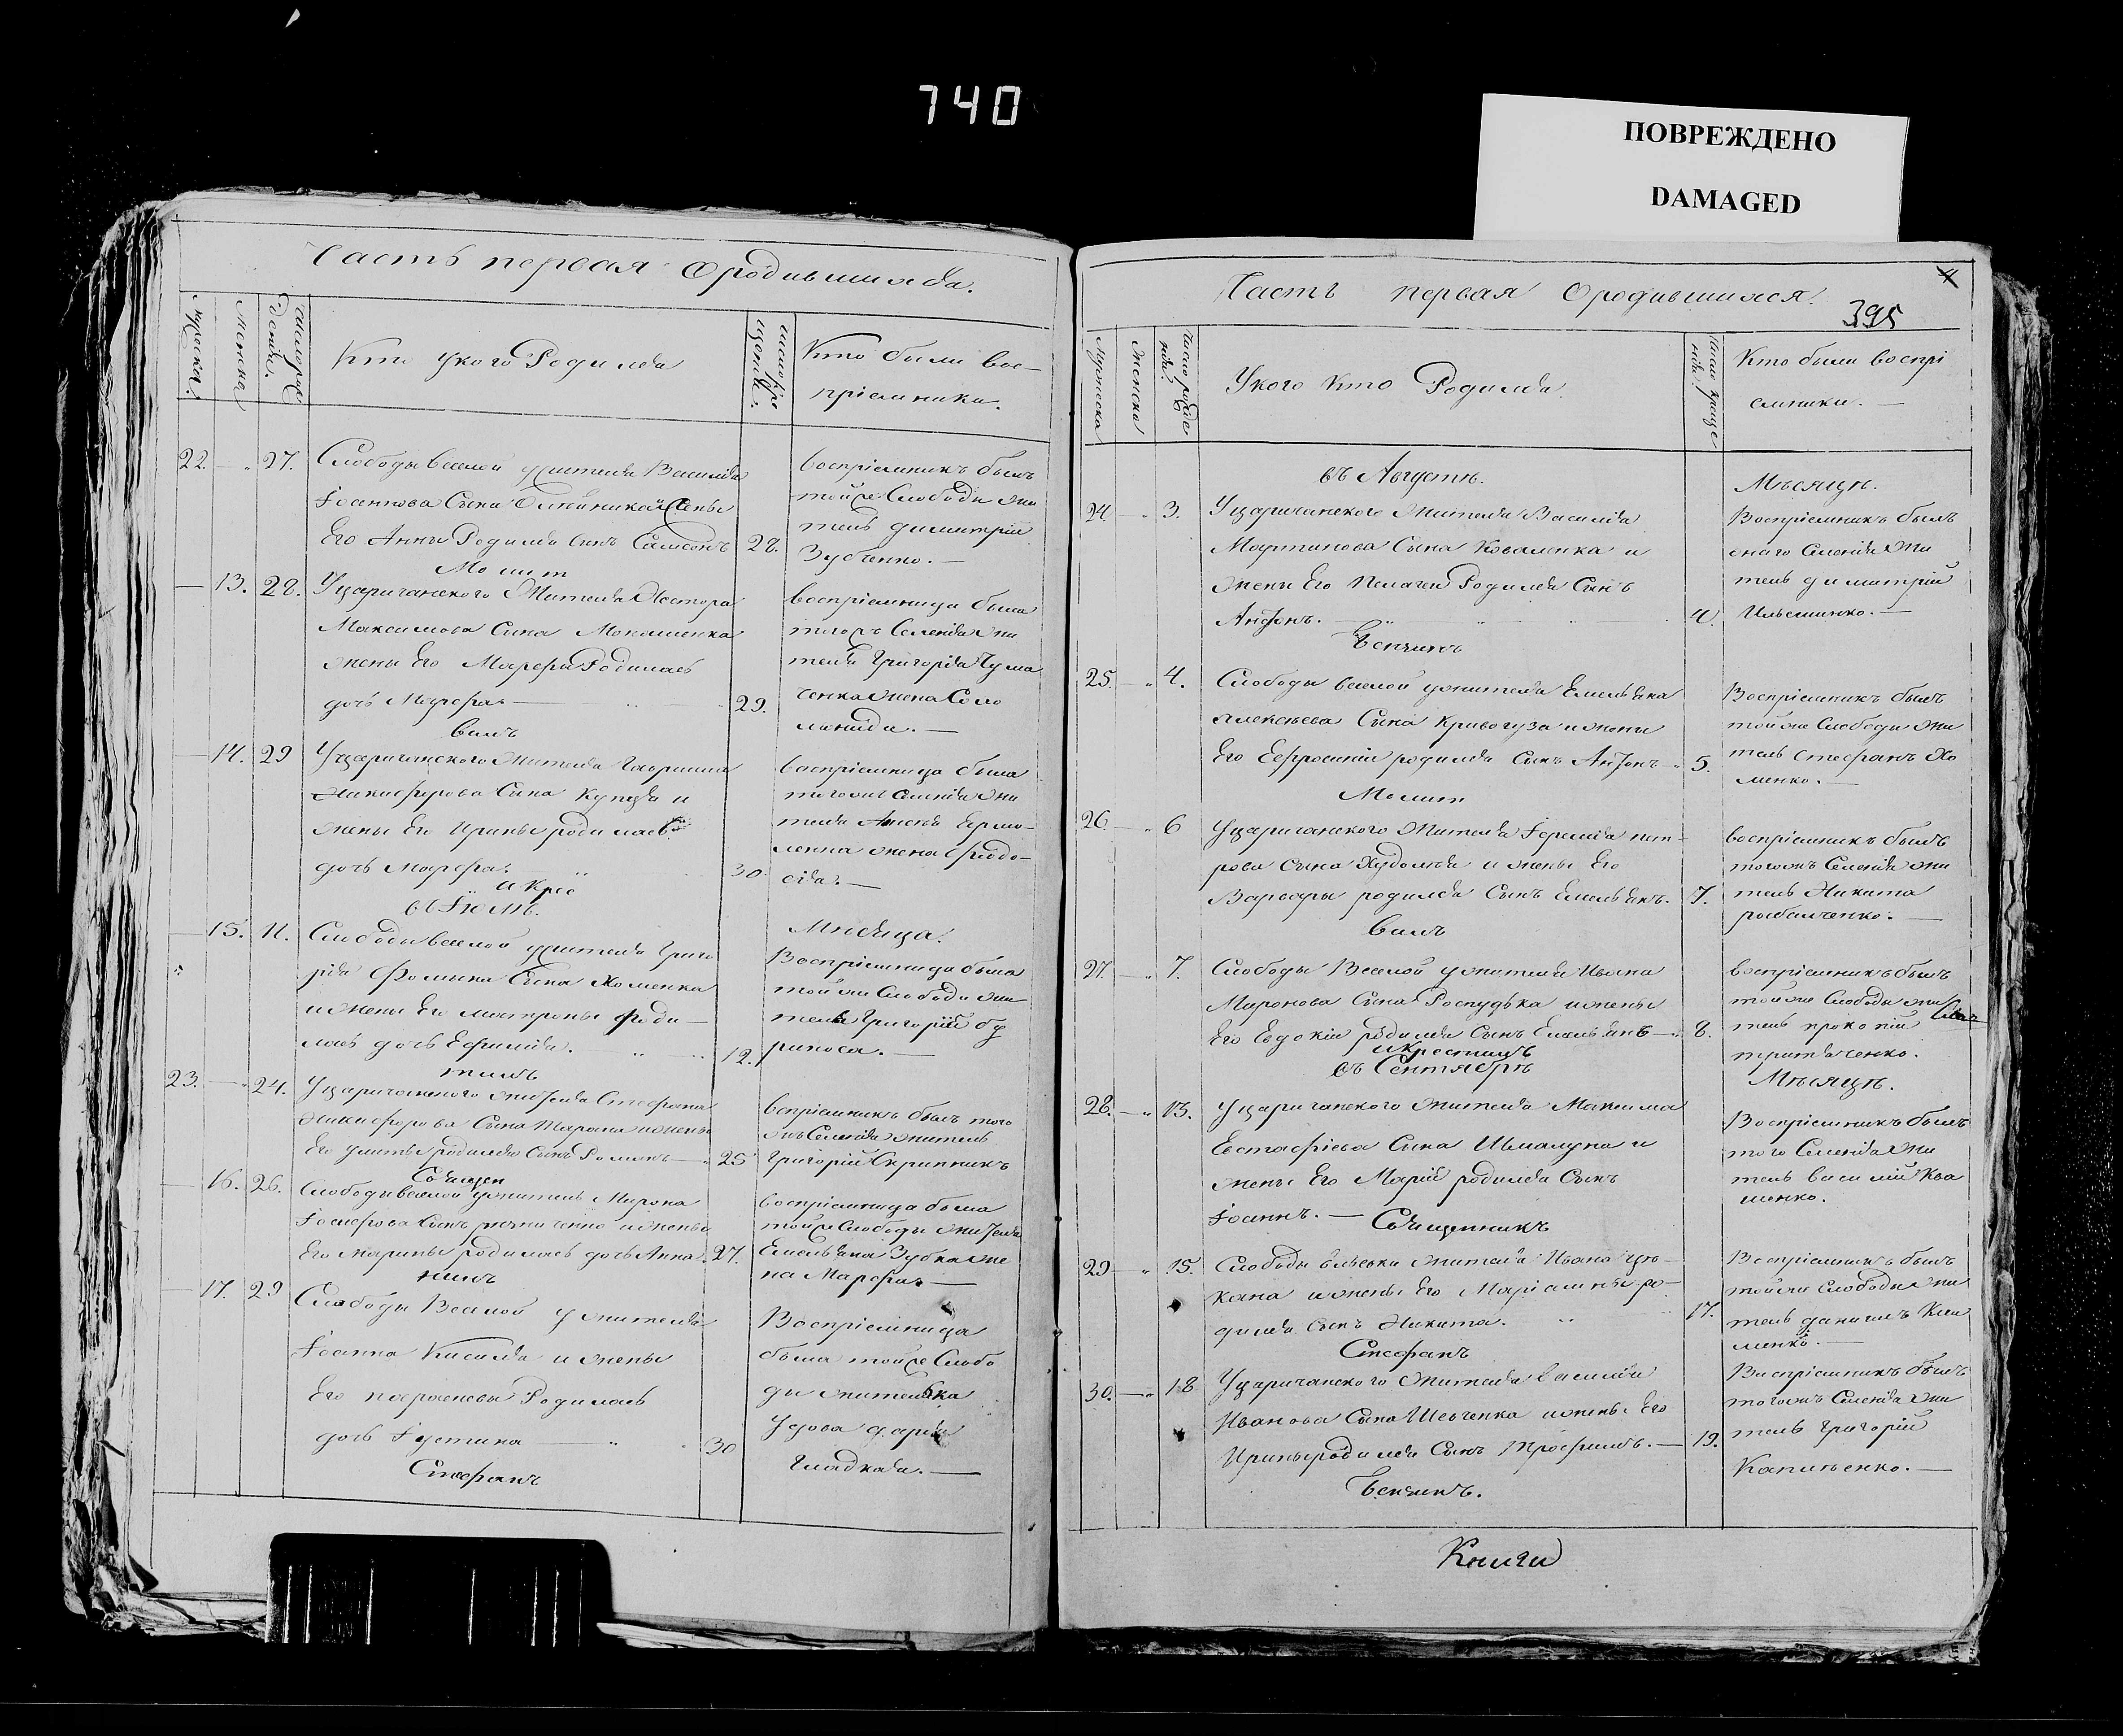 740
ПОВРЕЖДЕНО
DAMAGED
Часть первая Ородившихся.
мужеска.
женска
число рож
денія.
Кто укого Родился
число кре
щенія.
Кто были вос-
пріемники.
22. 27. Слободы веселой у жителя Василія
Іоаннова Сына
Его Анны Родился сынъ Самсонъ 28.
воспріемникъ былъ
тойже Слободы жи
тель димитрій
Зубченко.
Молит
13. 28. Уцаричанского Жителя Нестора
Максимова Сина
жены Его Марфы Родилась
дочь Марфа 29.
воспріемница была
тогожъ Селенія жи
теля Григорія Чума
ченка жена Соло
манида.
вилъ
14. 29 Уцаричанского Жителя Гавриила
Никифорова Сина Купція и
жены Его Ирины родилась
дочь Марфа. 30.
воспріемница была
тогожъ Селенія жи
теля Ермо-
ленка жена феодо-
сія.
и крес
въ Іюлѣ.
Мѣсяца.
15. 11. Слободы веселой у жителя Григо
рія Фомина Сына Хоменка
и жены Его матроны Роди-
лась дочь Ефимія. 12.
Воспріемница была
тойже Слободы жи
тель Григорій
тилъ
23. 24. Уцаричанского жителя Стефана
Никифорова Сына Тарана и жены
Его улиты родился Сынъ Романъ 25
воспріемникъ былъ того
жъ Селенія житель
Григорій Скрипникъ
Священ
16. 26. Слободы веселой у жителя Мирона
Іосифова и жены
Его марины родилась дочь Анна. 27.
воспріемница была
тойже Слободы жителя
Емельяна Зубка же
на Марфа.
никъ
17. 29 Слободы Веселой у жителя
Іоанна Кисиля и жены
Его параскевы Родилась
дочь Іустина 30
Воспріемница
была тойже Слобо
ды жителька
Удова дарія
Гладкая.
Стефанъ
4
Часть первая Ородившихся.
395
Мужеска
Женска
Число рожде
нія.
Укого Кто Родился.
число креще
нія.
Кто были воспрі
емники.
въ Августѣ.
Мѣсяцѣ.
24 3. Уцаричанского Жителя Василія
Мартинова Сына Коваленка и
жены Его Пелагеи Родился Сынъ
Анѳонъ. 4.
Воспріемникъ былъ
онаго Селенія жи
тель димитрій
Ильяшенко.
Бенчикъ
25. 4. Слободы веселой у жителя Емельяна
Алексѣева Сына Кривогуза и жены
Его Ефросиніи родился Сынъ Анѳонъ 5.
Воспріемникъ былъ
тойже Слободы жи
тель Стефанъ Хо
менко.
Молит
26. 6 Уцаричанского Жителя Іеремія пет-
рова сына Худолѣя и жены Его
Варвары родился Сынъ Емельянъ. 7.
воспріемникъ былъ
тогожъ Селенія жи
тель Никита
рыбалченко.
вилъ
27. 7. Слободы Веселой у жителя Ивана
Миронова Сына Роспудька и жены
Его Евдокіи родился Сынъ Емельянъ 8.
воспріемникъ былъ
тойже Слободы жи
тель прокопій
и Крестилъ
въ Сентябрѣ
Мѣсяцѣ.
28. 13. Уцаричанского Жителя Максима
Евстафіева Сина и
жены Его Маріи родился Сынъ
Іоаннъ.
Воспріемникъ былъ
того Селенія жи
тель василій Ква
шенко.
Священникъ
29 15. Слободы жителя Ивана
кана и жены Его Маріамны ро-
дился Сынъ Никита. 17.
Воспріемникъ былъ
тойже Слободы жи
тель даниилъ Кли
менко.
Стефанъ
30. 18 Уцаричанского Жителя Василія
Иванова Сына Шевченка и жены Его
Ирины родился Сынъ Трофимъ. 19.
Воспріемникъ былъ
тогожъ Селенія жи
тель Григорій
Бенчикъ.
Книги